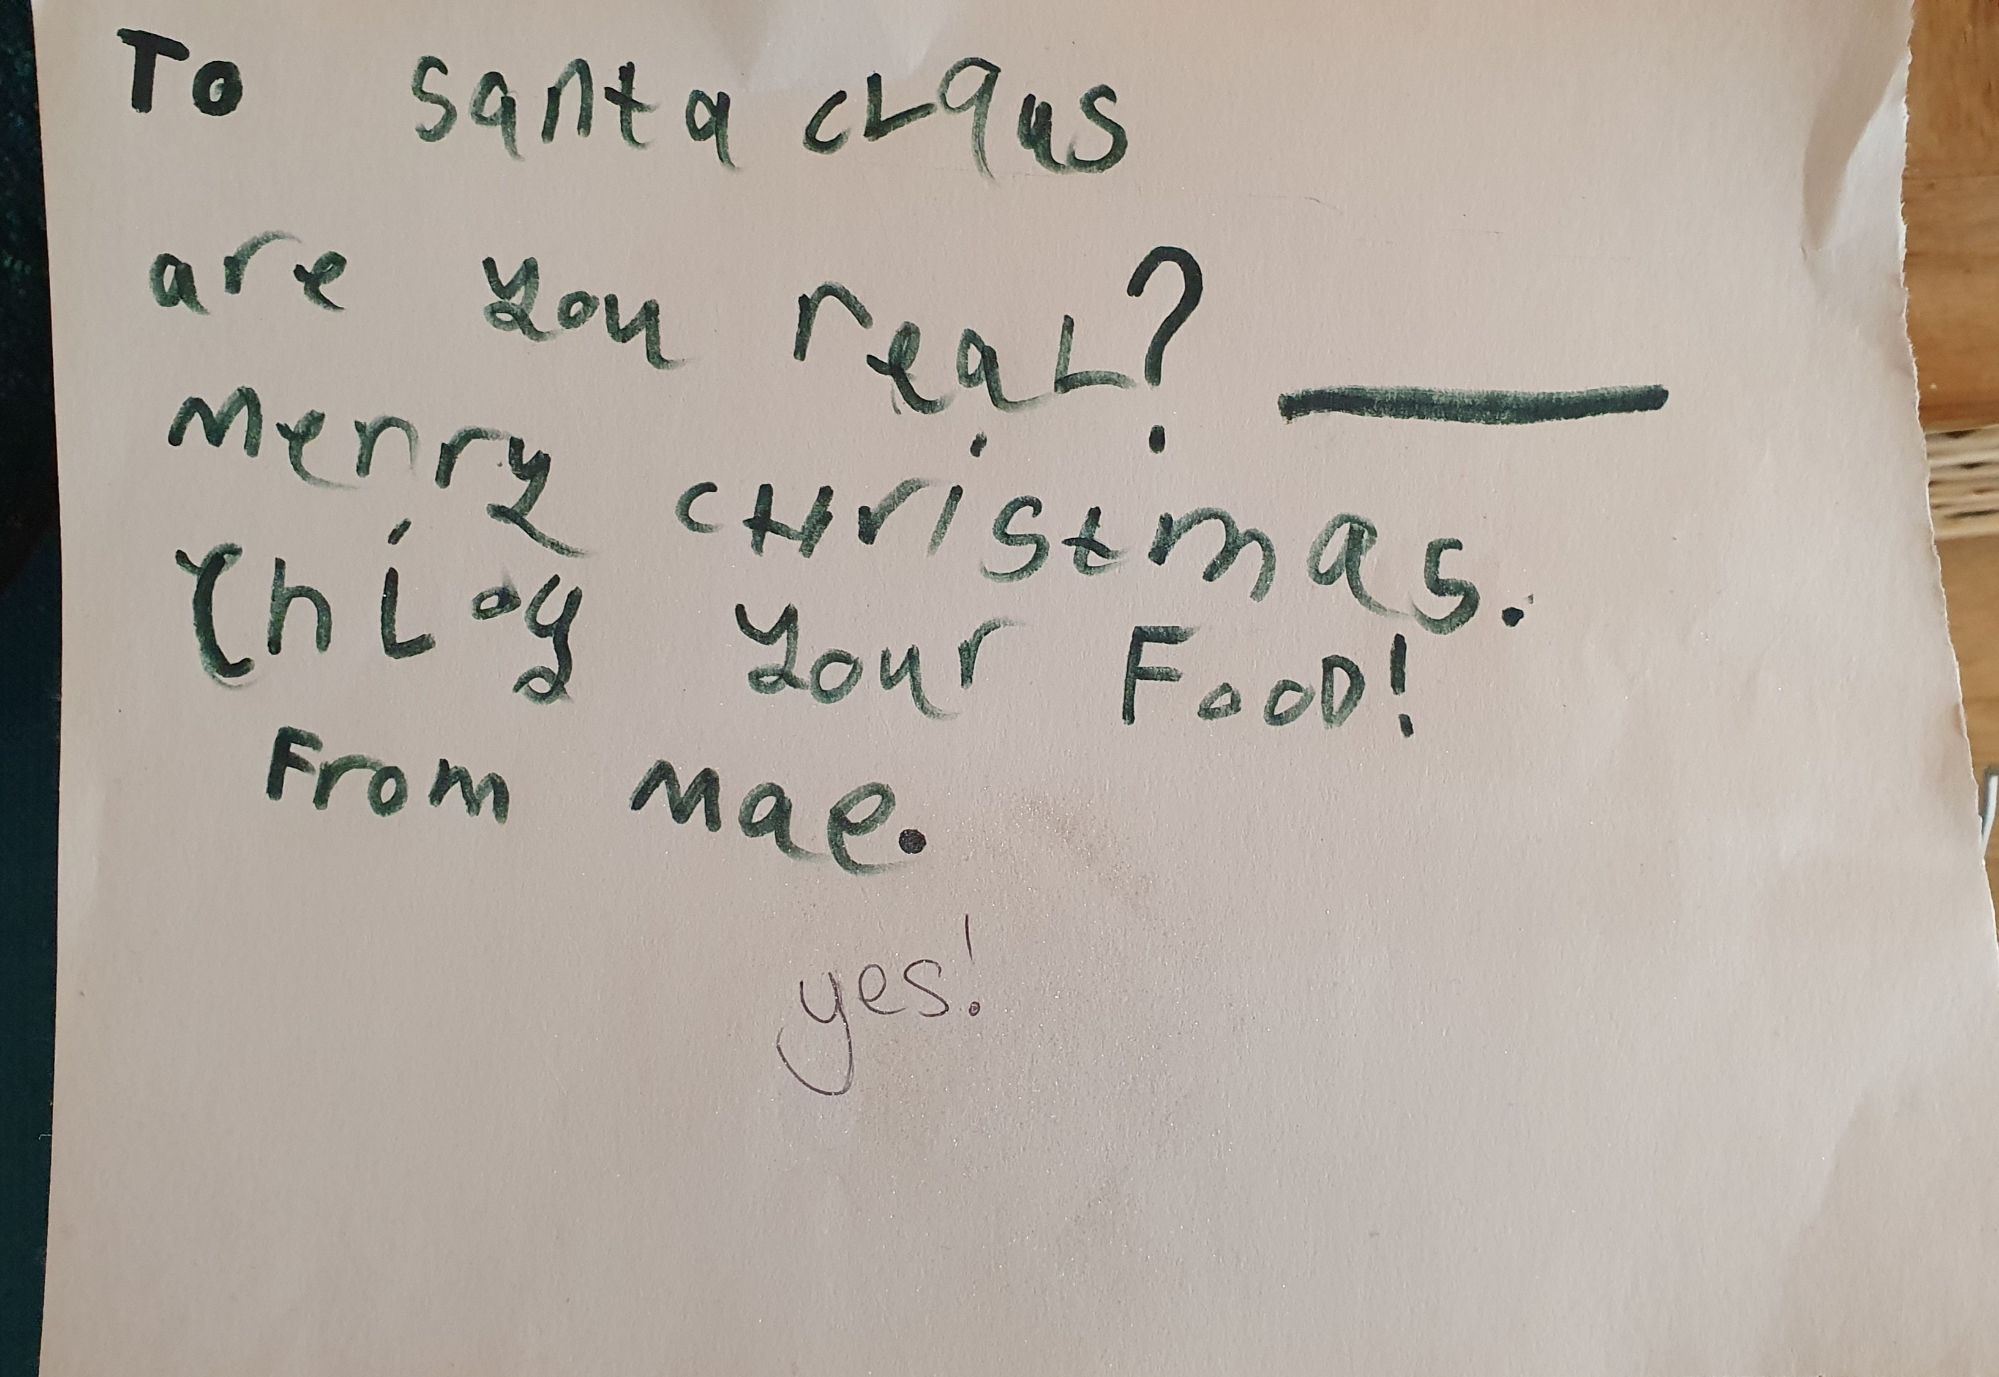 To Santa cLaus
are you reaL? ____
Merry cHristmas.
your FooD!
From Mae.
yes!